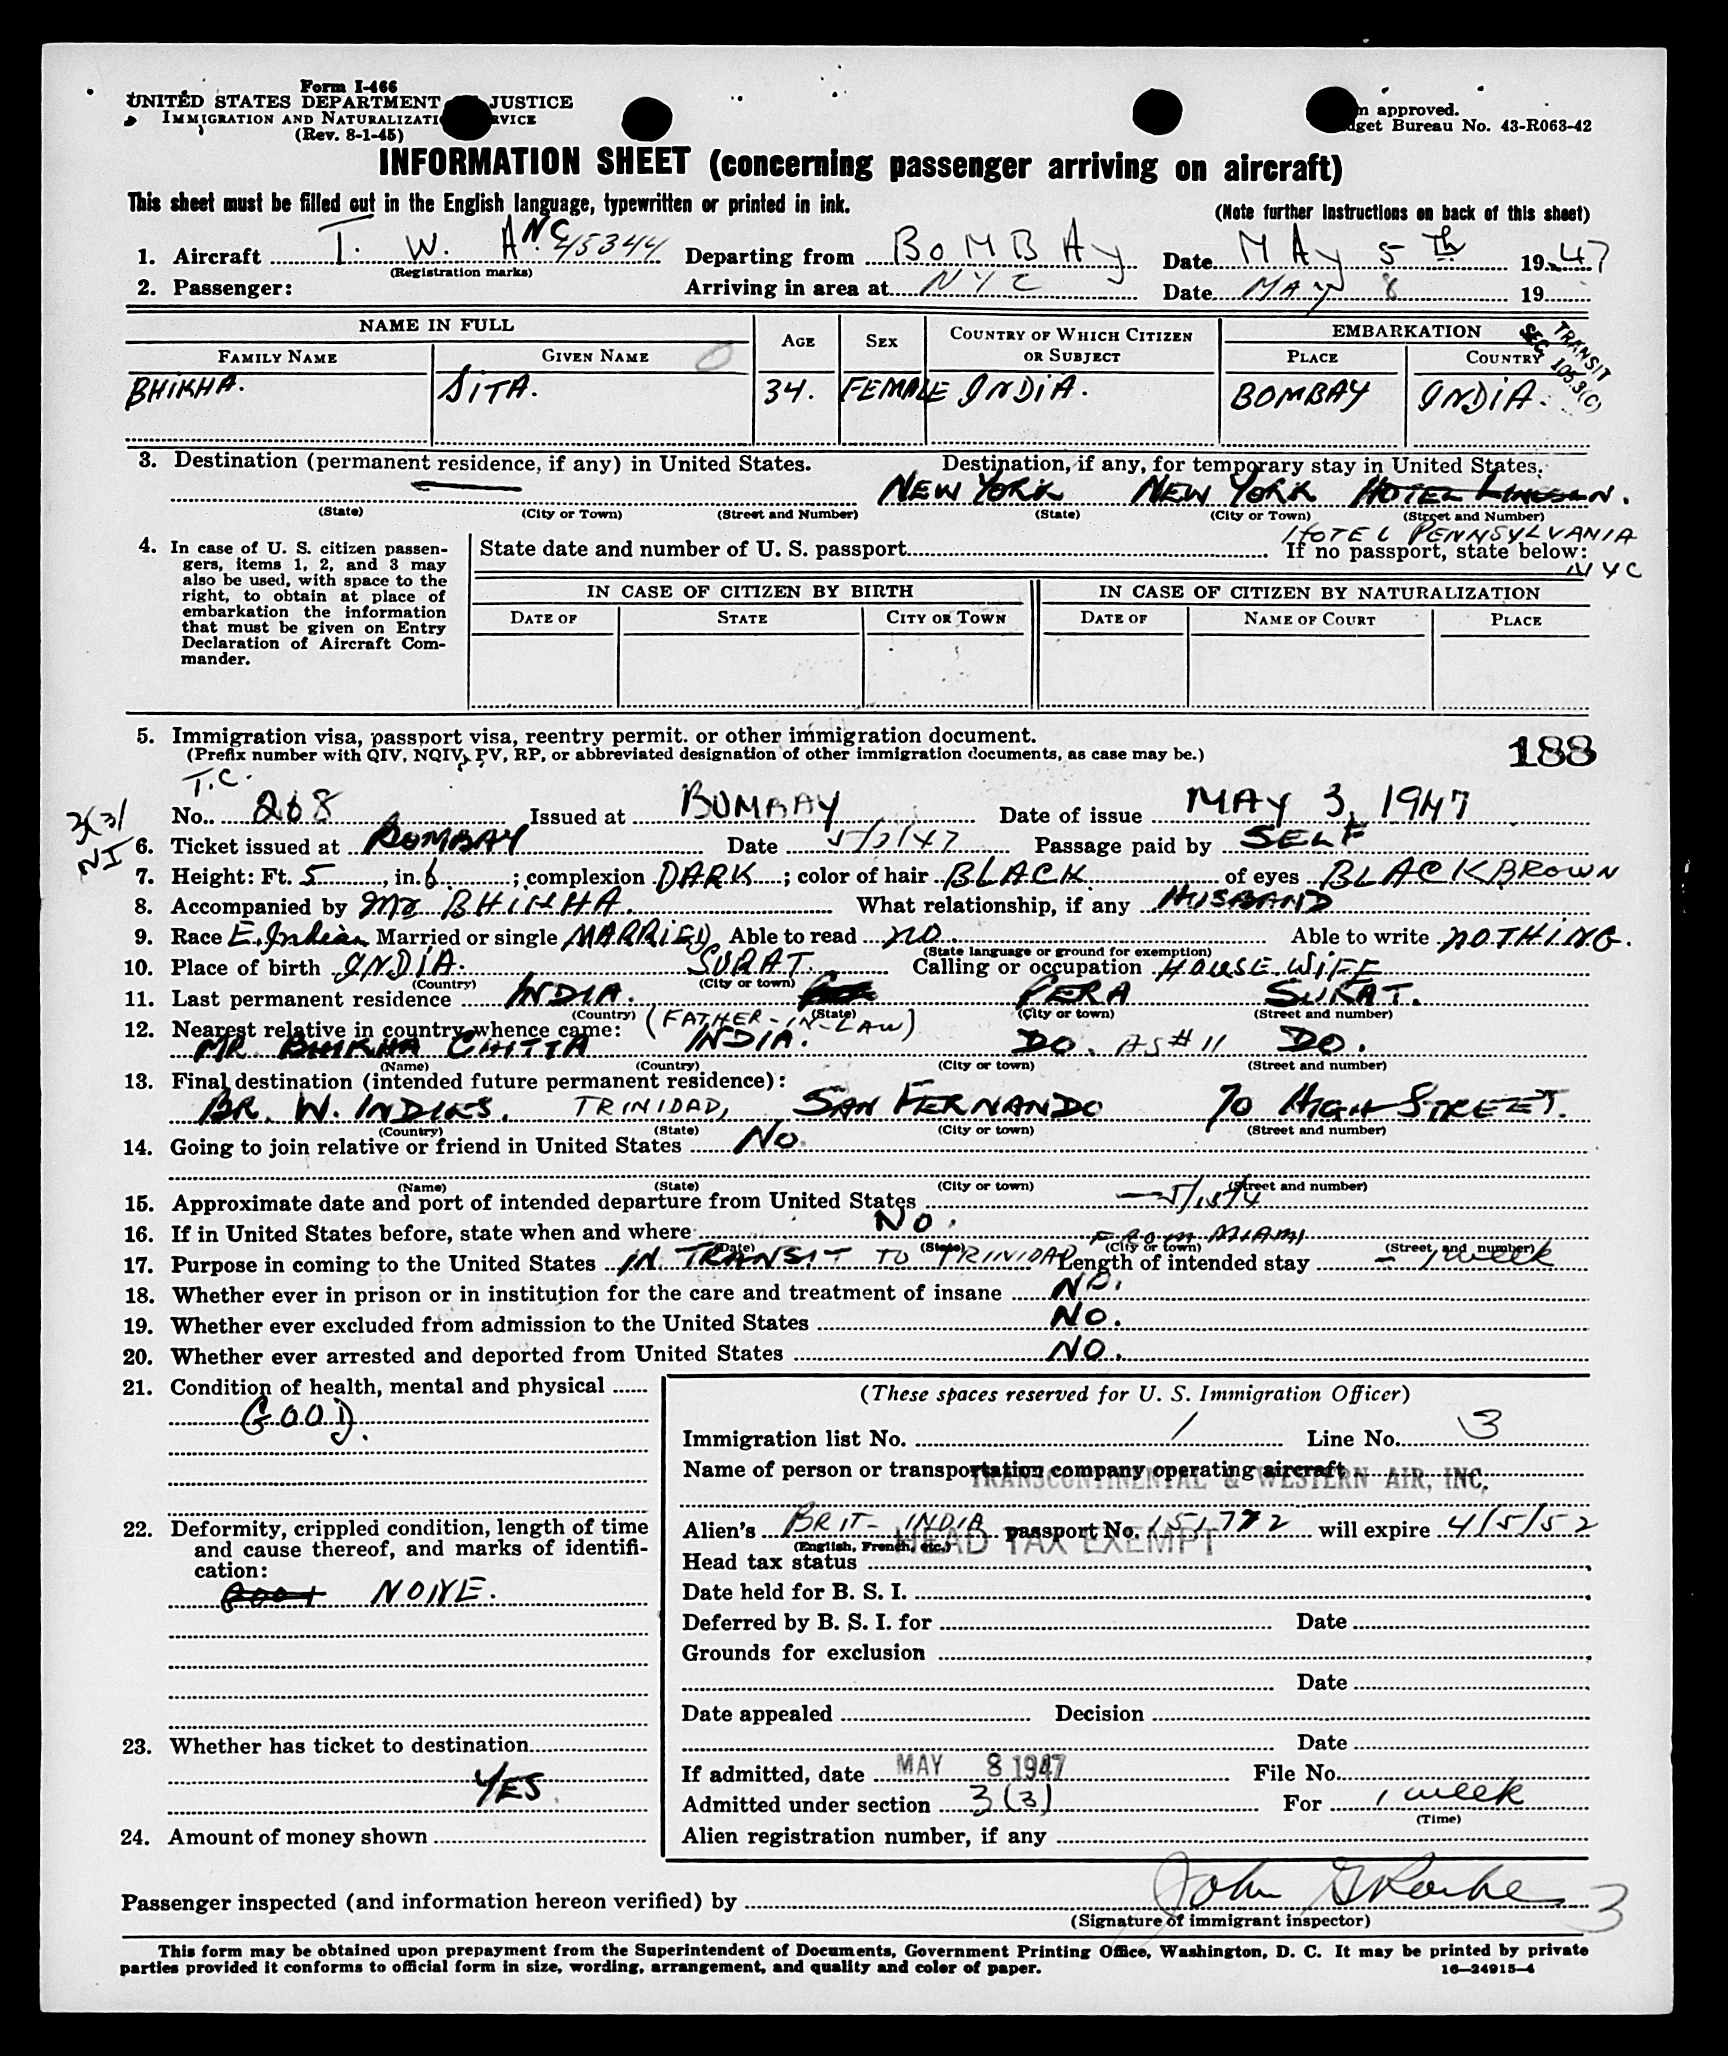 Form I-466
UNITED STATES DEPARTMENT JUSTICE
IMMIGRATION AND NATURALIZATI RVICE
(Rev. 8-1-45)
m approved.
dget Bureau No. 43-R063-42
INFORMATION SHEET (concerning passenger arriving on aircraft)
This sheet must be filled out in the English language, typewritten or printed in ink.
(Note further instructions on back of this sheet)
1. Aircraft T. W. A. NC 45344 Departing from BOMBAY Date MAY 5th 1947
(Registration marks)
2. Passenger: Arriving in area at NYC Date MAY 8 19
NAME IN FULL AGE SEX COUNTRY OF WHICH CITIZEN OR SUBJECT EMBARKATION
FAMILY NAME GIVEN NAME PLACE COUNTRY
TRANSIT SEC. 105.3(C)
BHIKHA. SITA. 34. FEMALE INDIA. BOMBAY INDIA.
3. Destination (permanent residence, if any) in United States. Destination, if any, for temporary stay in United States.
NEW YORK NEW YORK HOTEL LINCOLN.
(State) (City or Town) (Street and Number) (State) (City or Town) (Street and Number)
HOTEL PENNSYLVANIA
NYC
4. In case of U. S. citizen passen-
gers, items 1, 2, and 3 may
also be used, with space to the
right, to obtain at place of
embarkation the information
that must be given on Entry
Declaration of Aircraft Com-
mander.
State date and number of U. S. passport If no passport, state below:
IN CASE OF CITIZEN BY BIRTH IN CASE OF CITIZEN BY NATURALIZATION
DATE OF STATE CITY OR TOWN DATE OF NAME OF COURT PLACE
5. Immigration visa, passport visa, reentry permit. or other immigration document.
(Prefix number with QIV, NQIV, PV, RP, or abbreviated designation of other immigration documents, as case may be.)
188
T.C.
No. 268 Issued at BOMBAY Date of issue MAY 3, 1947
3(3)
NI
6. Ticket issued at BOMBAY Date 5/3/47 Passage paid by SELF
7. Height: Ft. 5, in. 6; complexion DARK; color of hair BLACK of eyes BLACK BROWN
8. Accompanied by Mr BHIKHA. What relationship, if any HUSBAND
9. Race E. Indian Married or single MARRIED Able to read NO. Able to write NOTHING.
(State language or ground for exemption)
10. Place of birth INDIA. SURAT. Calling or occupation HOUSE WIFE
(Country) (City or town)
11. Last permanent residence INDIA. PERA SURAT.
(Country) (State) (City or town) (Street and number)
12. Nearest relative in country whence came: (FATHER-IN-LAW)
MR BHIKHA CHITTA INDIA. DO. AS #11 DO.
(Name) (Country) (City or town) (Street and number)
13. Final destination (intended future permanent residence):
BR. W. INDIES. TRINIDAD, SAN FERNANDO 70 HIGH STREET.
(Country) (State) (City or town) (Street and number)
14. Going to join relative or friend in United States NO.
(Name) (State) (City or town) (Street and number)
15. Approximate date and port of intended departure from United States
16. If in United States before, state when and where NO. FROM MIAMI
(Date) (State) (City or town) (Street and number)
17. Purpose in coming to the United States IN TRANSIT TO TRINIDAD Length of intended stay - 1 week
18. Whether ever in prison or in institution for the care and treatment of insane NO.
19. Whether ever excluded from admission to the United States NO.
20. Whether ever arrested and deported from United States NO.
21. Condition of health, mental and physical
GOOD.
22. Deformity, crippled condition, length of time
and cause thereof, and marks of identifi-
cation:
Good NONE.
23. Whether has ticket to destination
YES.
24. Amount of money shown
(These spaces reserved for U. S. Immigration Officer)
Immigration list No. 1 Line No. 3
Name of person or transportation company operating aircraft
TRANSCONTINENTAL & WESTERN AIR, INC.
Alien's BRIT-INDIA passport No. 151772 will expire 4/5/52
(English, French, etc.)
HEAD TAX EXEMPT
Head tax status
Date held for B. S. I.
Deferred by B. S. I. for Date
Grounds for exclusion
Date
Date appealed Decision
Date
If admitted, date MAY 8 1947 File No.
Admitted under section 3(3) For 1 week
(Time)
Alien registration number, if any
Passenger inspected (and information hereon verified) by John G Rorke 3
(Signature of immigrant inspector)
This form may be obtained upon prepayment from the Superintendent of Documents, Government Printing Office, Washington, D. C. It may be printed by private
parties provided it conforms to official form in size, wording, arrangement, and quality and color of paper.
16—24915-4